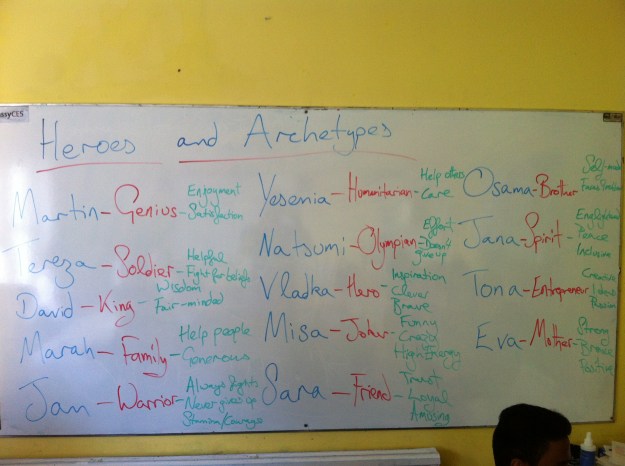 Heroes and Archetypes
Martin - Genius - Enjoyment
Satisfaction
Tereza - Soldier - Helpful
Fight for beliefs
David - King - Wisdom
Fair-minded
Marah - Family - Help people
Generous
Jan - Warrior - Always fights
Never gives up
Stamina/Courage
Yesenia - Humanitarian - Help others
Care
Natsumi - Olympian - Effort
Don't
give up
Vladka - Hero - Inspiration
Clever
Brave
Misa - Joker - Funny
Crazy
High Energy
Sara - Friend - Trust
Loyal
Amusing
Osama - Brother - Self-made
Jana - Spirit -
Peace
Inclusive
Tona - Entrepreneur - Creative
Ideas
Passion
Eva - Mother - Strong
Brave
Positive